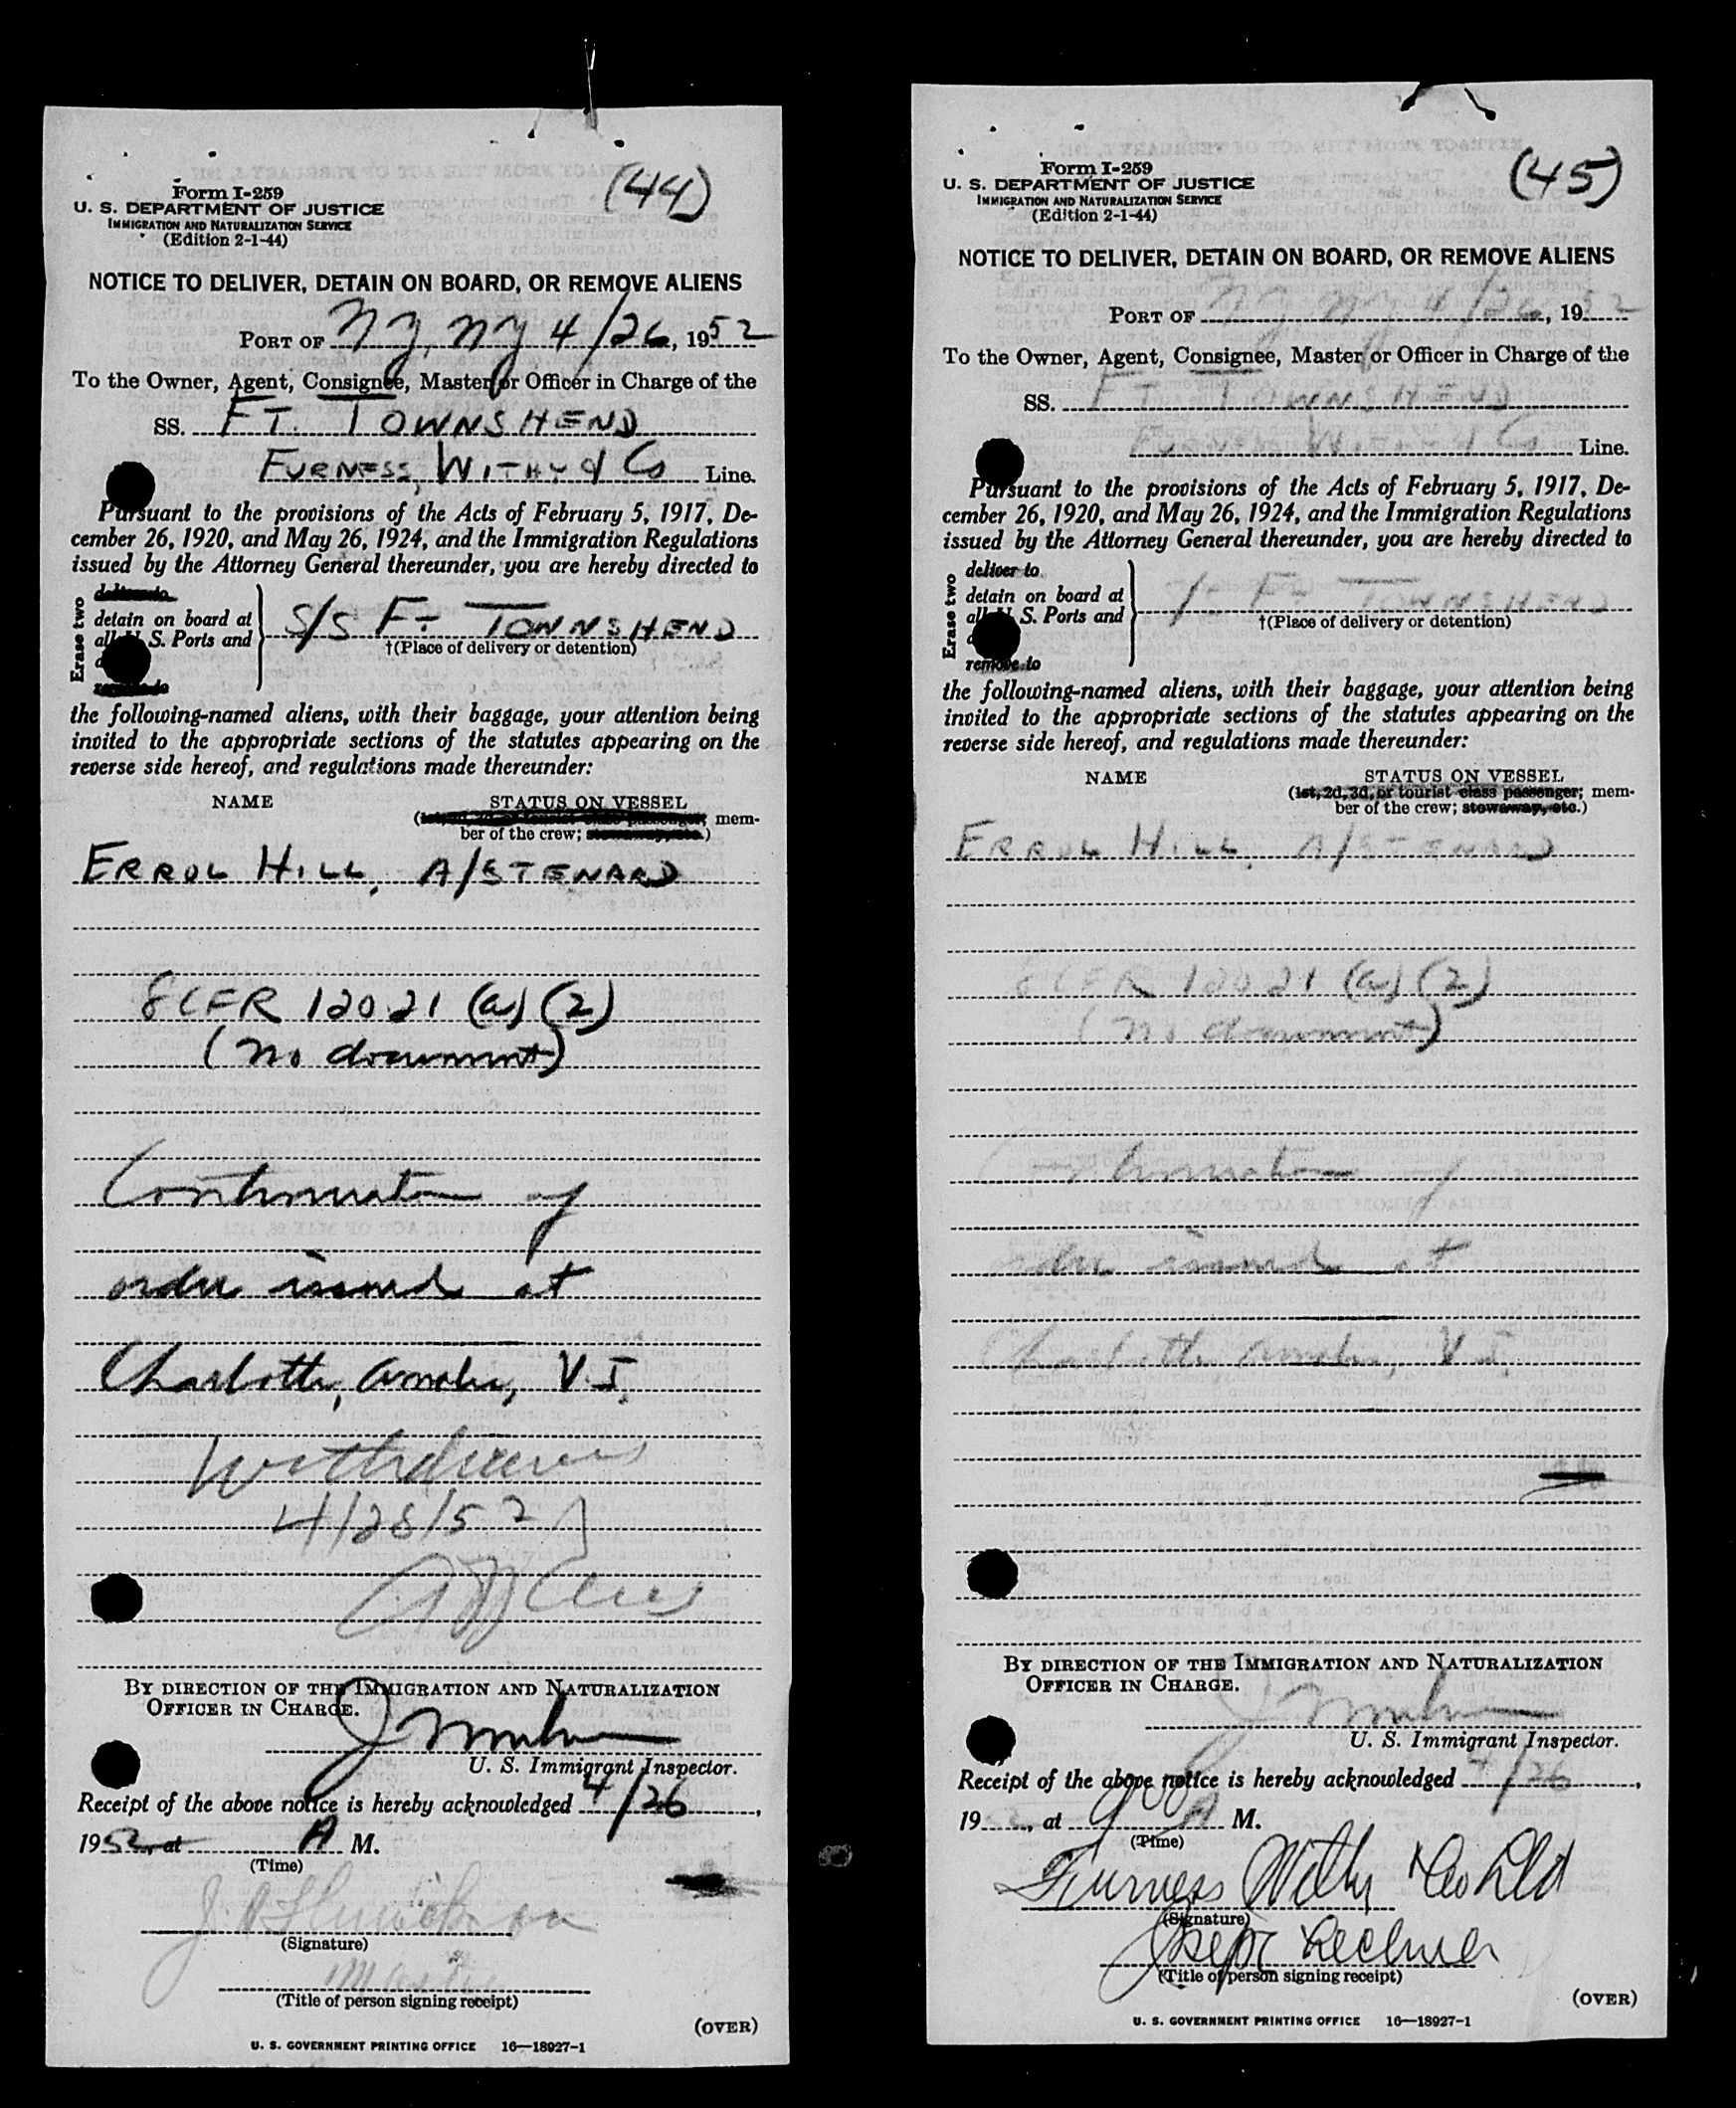 (44)
Form I-259
U. S. DEPARTMENT OF JUSTICE
IMMIGRATION AND NATURALIZATION SERVICE
(Edition 2-1-44)
NOTICE TO DELIVER, DETAIN ON BOARD, OR REMOVE ALIENS
PORT OF NY, NY 4/26, 1952
To the Owner, Agent, Consignee, Master or Officer in Charge of the
SS. FT. TOWNSHEND
FURNESS, WITHY & Co Line.
Pursuant to the provisions of the Acts of February 5, 1917, De-
cember 26, 1920, and May 26, 1924, and the Immigration Regulations
issued by the Attorney General thereunder, you are hereby directed to
Erase two
deliver to
detain on board at
all U. S. Ports and
remove to
S/S FT TOWNSHEND
†(Place of delivery or detention)
the following-named aliens, with their baggage, your attention being
invited to the appropriate sections of the statutes appearing on the
reverse side hereof, and regulations made thereunder:
NAME STATUS ON VESSEL
(1st, 2d, 3d, or tourist class passenger; mem-
ber of the crew; stowaway, etc.)
ERROL HILL, A/STEWARD
8CFR 120.21 (a) (2)
(no document)
Continuation of
order issued at
Charlotte, Amalie, V.I.
Withdrawn
4/28/52
BY DIRECTION OF THE IMMIGRATION AND NATURALIZATION
OFFICER IN CHARGE.
U. S. Immigrant Inspector.
Receipt of the above notice is hereby acknowledged 4/26,
1952, at A M.
(Time)
(Signature)
Master
(Title of person signing receipt)
(OVER)
U. S. GOVERNMENT PRINTING OFFICE 16—18927-1
(45)
Form I-259
U. S. DEPARTMENT OF JUSTICE
IMMIGRATION AND NATURALIZATION SERVICE
(Edition 2-1-44)
NOTICE TO DELIVER, DETAIN ON BOARD, OR REMOVE ALIENS
PORT OF NY NY 4/26, 1952
To the Owner, Agent, Consignee, Master or Officer in Charge of the
SS. FT TOWNSHEND
FURNESS WITHY & Co Line.
Pursuant to the provisions of the Acts of February 5, 1917, De-
cember 26, 1920, and May 26, 1924, and the Immigration Regulations
issued by the Attorney General thereunder, you are hereby directed to
Erase two
deliver to
detain on board at
all U. S. Ports and
remove to
FT TOWNSHEND
†(Place of delivery or detention)
the following-named aliens, with their baggage, your attention being
invited to the appropriate sections of the statutes appearing on the
reverse side hereof, and regulations made thereunder:
NAME STATUS ON VESSEL
(1st, 2d, 3d, or tourist class passenger; mem-
ber of the crew; stowaway, etc.)
ERROL HILL, A/STEWARD
8CFR 120.21 (a) (2)
(no document)
Continuation of
order issued at
Charlotte Amalie, V.I.
BY DIRECTION OF THE IMMIGRATION AND NATURALIZATION
OFFICER IN CHARGE.
U. S. Immigrant Inspector.
Receipt of the above notice is hereby acknowledged 4/26,
1952, at 9:00 A M.
(Time)
Furness Withy & Co Ltd
(Signature)
Joseph
(Title of person signing receipt)
(OVER)
U. S. GOVERNMENT PRINTING OFFICE 16—18927-1